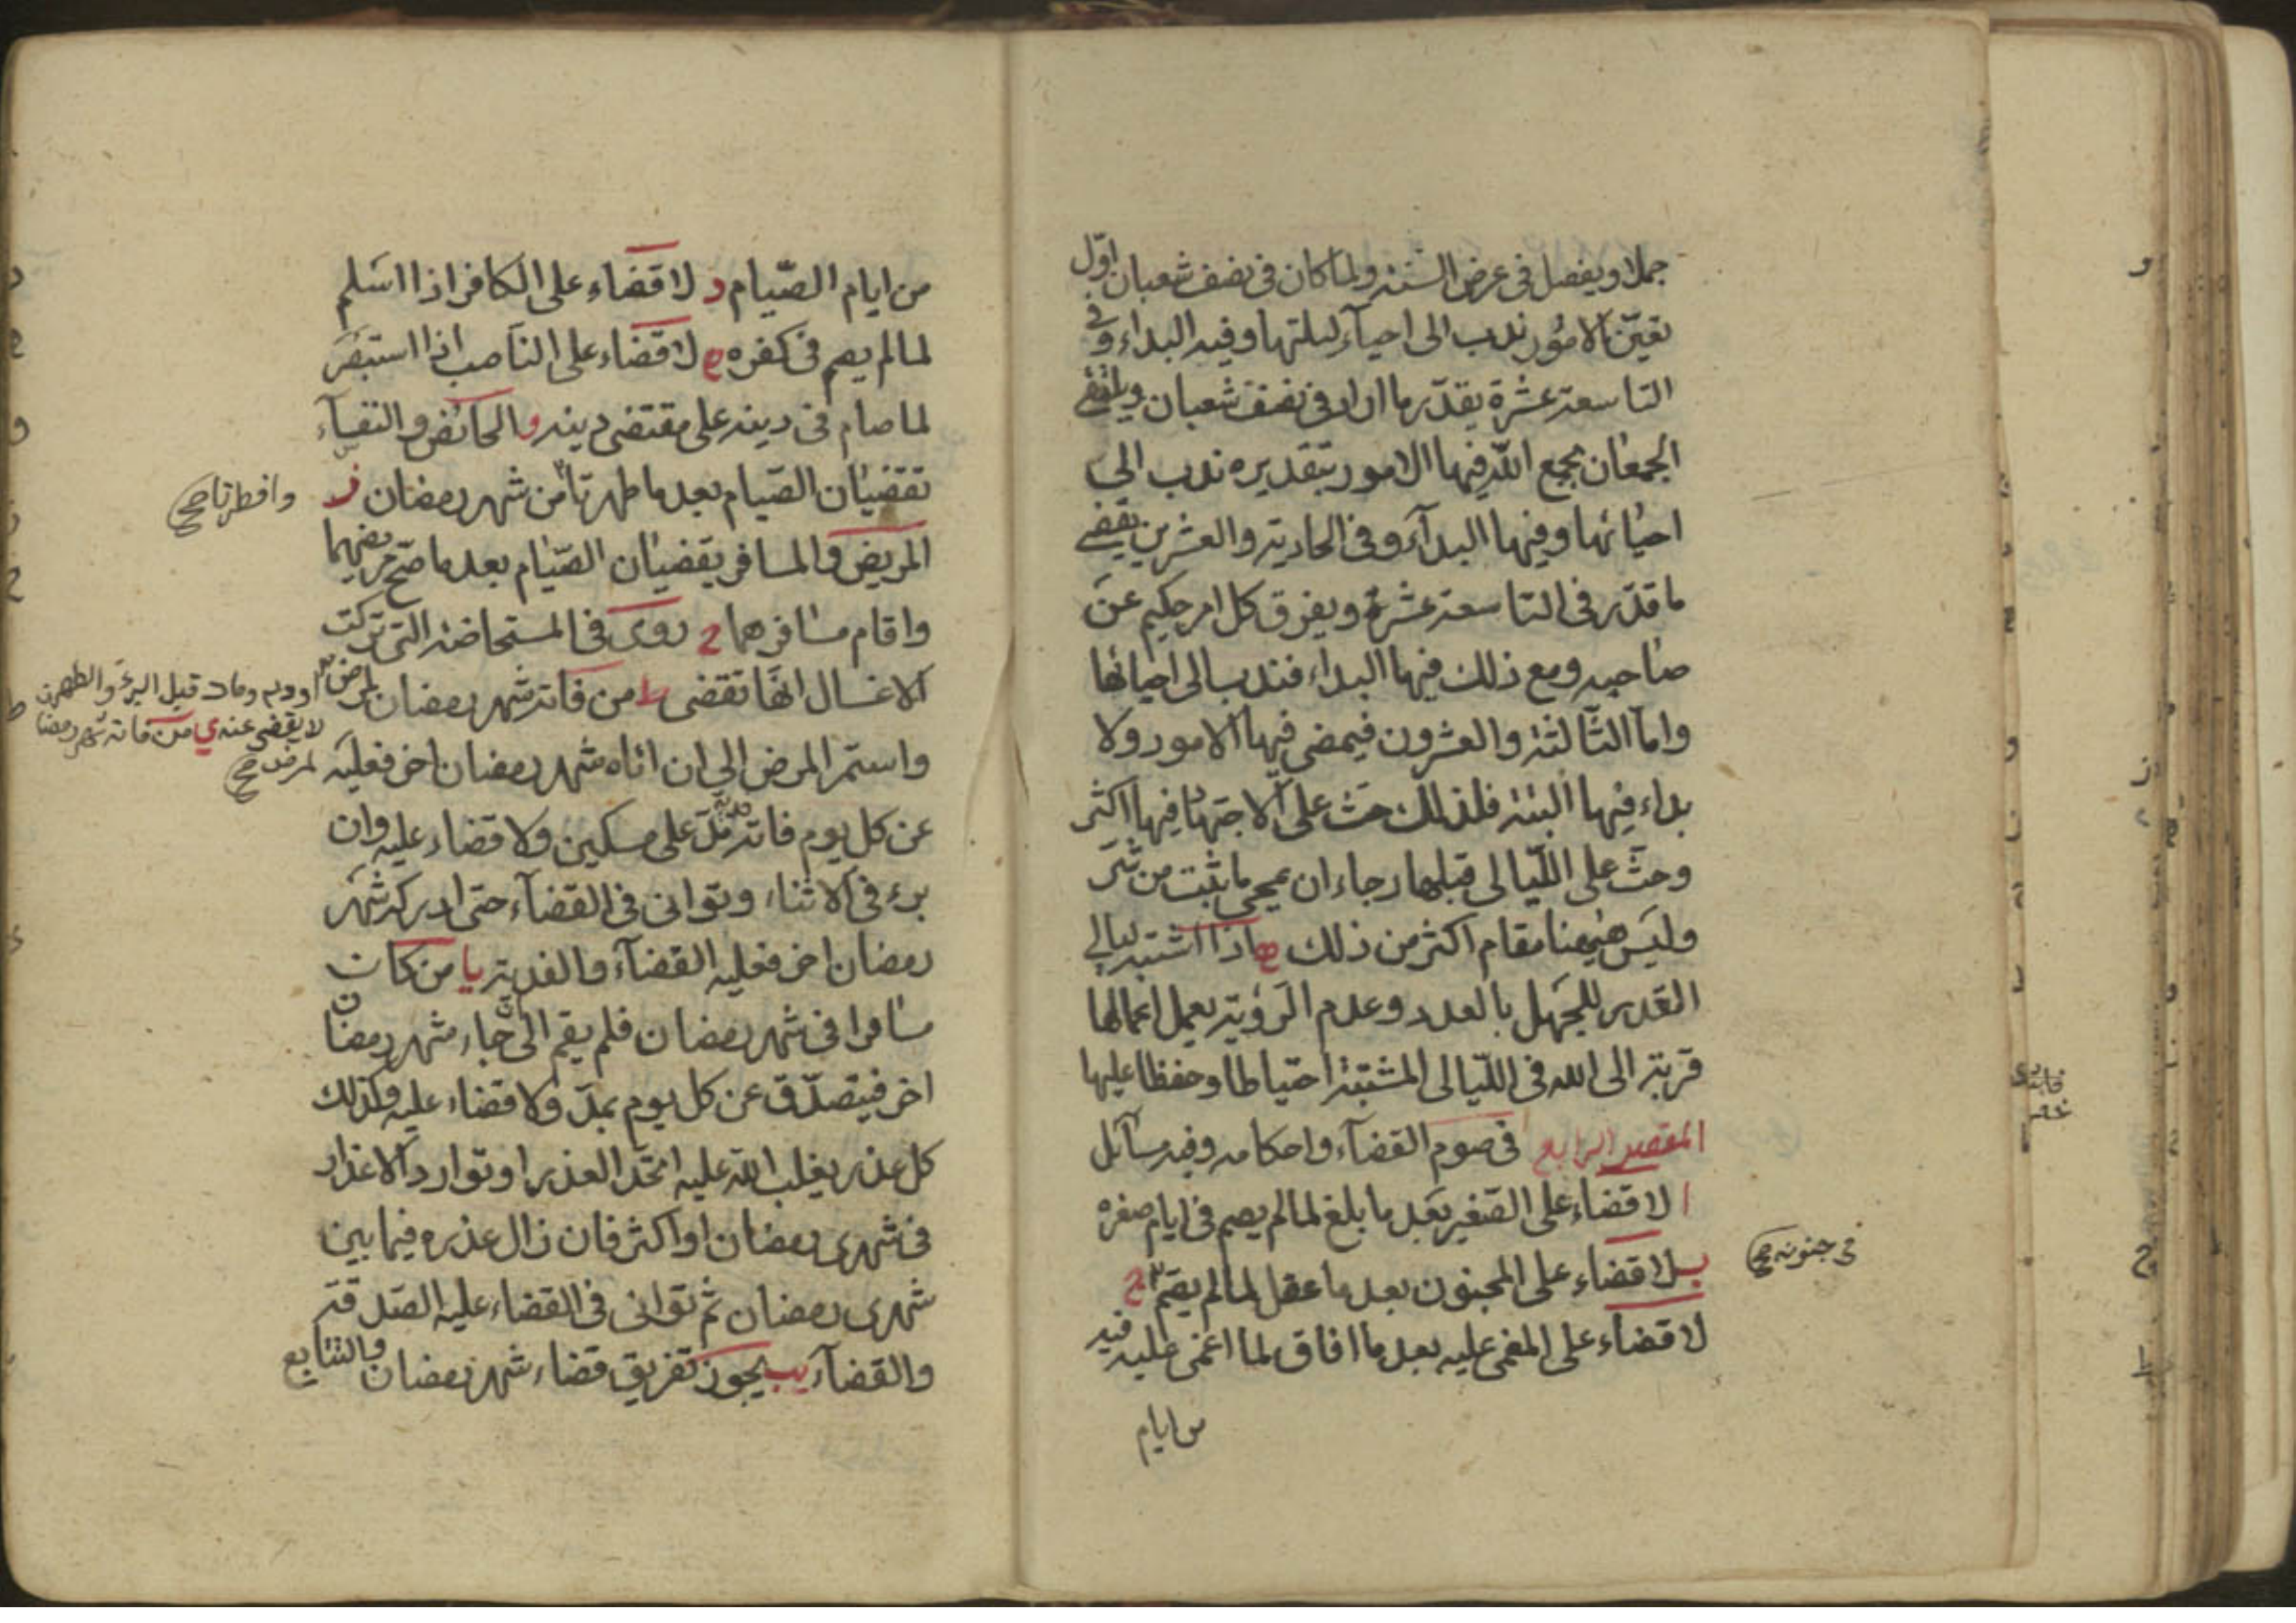 جملا ويفصل فى عرض السنة ولما كان فى نصف شعبان اوّل
تعيّن الامور ندب الى احيآء ليلتها وفيه البداء وفى
التاسعة عشرة يقدّر ما اراد فى نصف شعبان ويلتقى
الجمعان يجمع اللّه فيها الامور بتقديره ندب الى
احيائها وفيها البدآء وفى الحادية والعشرين يقضى
ما قدّر فى التاسعة عشرة ويفرق كل امر حكيم عن
صاحبه ومع ذلك فيها البداء فندب الى احيائها
وامّا الثالثة والعشرون فيمضى فيها الامور ولا
بداء فيها البتة فلذلك حثّ على الاجتهاد فيها اكثر
وحثّ على اللّيالى قبلها رجاء ان يمحى ما يثبت من شرّ
وليس هيهنا مقام اكثر من ذلك ه اذا اشتبه ليالى
القدر للجهل بالعدد وعدم الرؤية يعمل اعمالها
قربة الى الله فى اللّيالى المشتبة احتياطا وحفظا عليها
المقصد الرابع فى صوم القضآء واحكامه وفيه مسآئل
ا لا قضاء على الصّغير بعد ما بلغ لما لم يصم فى ايام صغره
ب لا قضاء على المجنون بعد ما عقل لما لم يصم ج
فى جنونه صح
لا قضاء على المغمى عليه بعد ما افاق لما اغمى عليه فيه
من ايام
من ايام الصّيام د لا قضاء على الكافر اذا اسلم
لما لم يصم فى كفره ه لا قضاء على الناصب اذا استبصر
لما صام فى دينه على مقتضى دينه و الحائض والنفسآء
تقضيان الصّيام بعد ما طهرتا من شهر رمضان ز
وافطرتا صح
المريض والمسافر يقضيان الصّيام بعد ما صحّ مريضهما
واقام مسافرهما ح روى فى المستحاضة التى تركت
الاغسال انّها تقضى ط من فاته شهر رمضان لمرض
او دم ومات قبل البرء والطهر
لا يقضى عنه ي من فاته شهر رمضان
لمرض صح
واستمر المرض الى ان اتاه شهر رمضان اخر فعليه
عن كل يوم فاته مدّ على مسكين ولا قضاء عليه وان
برء فى الاثناء وتوانى فى القضآء حتى ادركه شهر
رمضان اخر فعليه القضآء والفدية يا من كان
مسافرا فى شهر رمضان فلم يقم الى ان جاء شهر رمضان
اخر فيتصدّق عن كل يوم بمدّ ولا قضاء عليه وكذلك
كل عذر يغلب اللّه عليه اتّحد العذر او توارد الاعذار
فى شهرى رمضان او اكثر فان زال عذره فيما بين
شهرى رمضان ثم توانى فى القضاء عليه الصّدقة
والقضآء يب يجوز تفريق قضاء شهر رمضان والتتابع